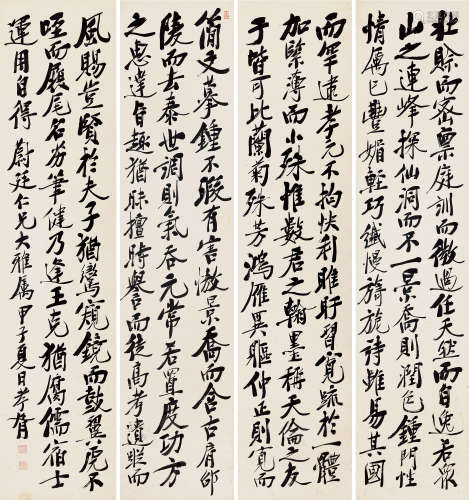 壯賒而密稟庭訓而微過任天然而自逸若眾
山之連峰探仙洞而不一景喬則潤色鍾門性
情厲已豐媚輕巧纖慢旖旎詩雖易其國
而罕遺孝元不拘快利睢盱習寬疏於一體
加緊薄而小殊惟數君之翰墨稱天倫之友
于皆可比蘭菊殊芳鴻雁異軀仲正則寬而
簡文摹鍾不瑕有害傲景喬而含古肩邵
陵而去泰世調則氣吞元常若置度功方
之忠達旨趣猶昧擅時譽而徒高考遺蹤而
風賜豈賢於夫子猶鸞窺鏡而鼓翼虎不
咥而履尾名劣筆健乃逢王克猶腐儒宿士
運用自得 蔚廷仁兄大雅屬 甲子夏日孝胥